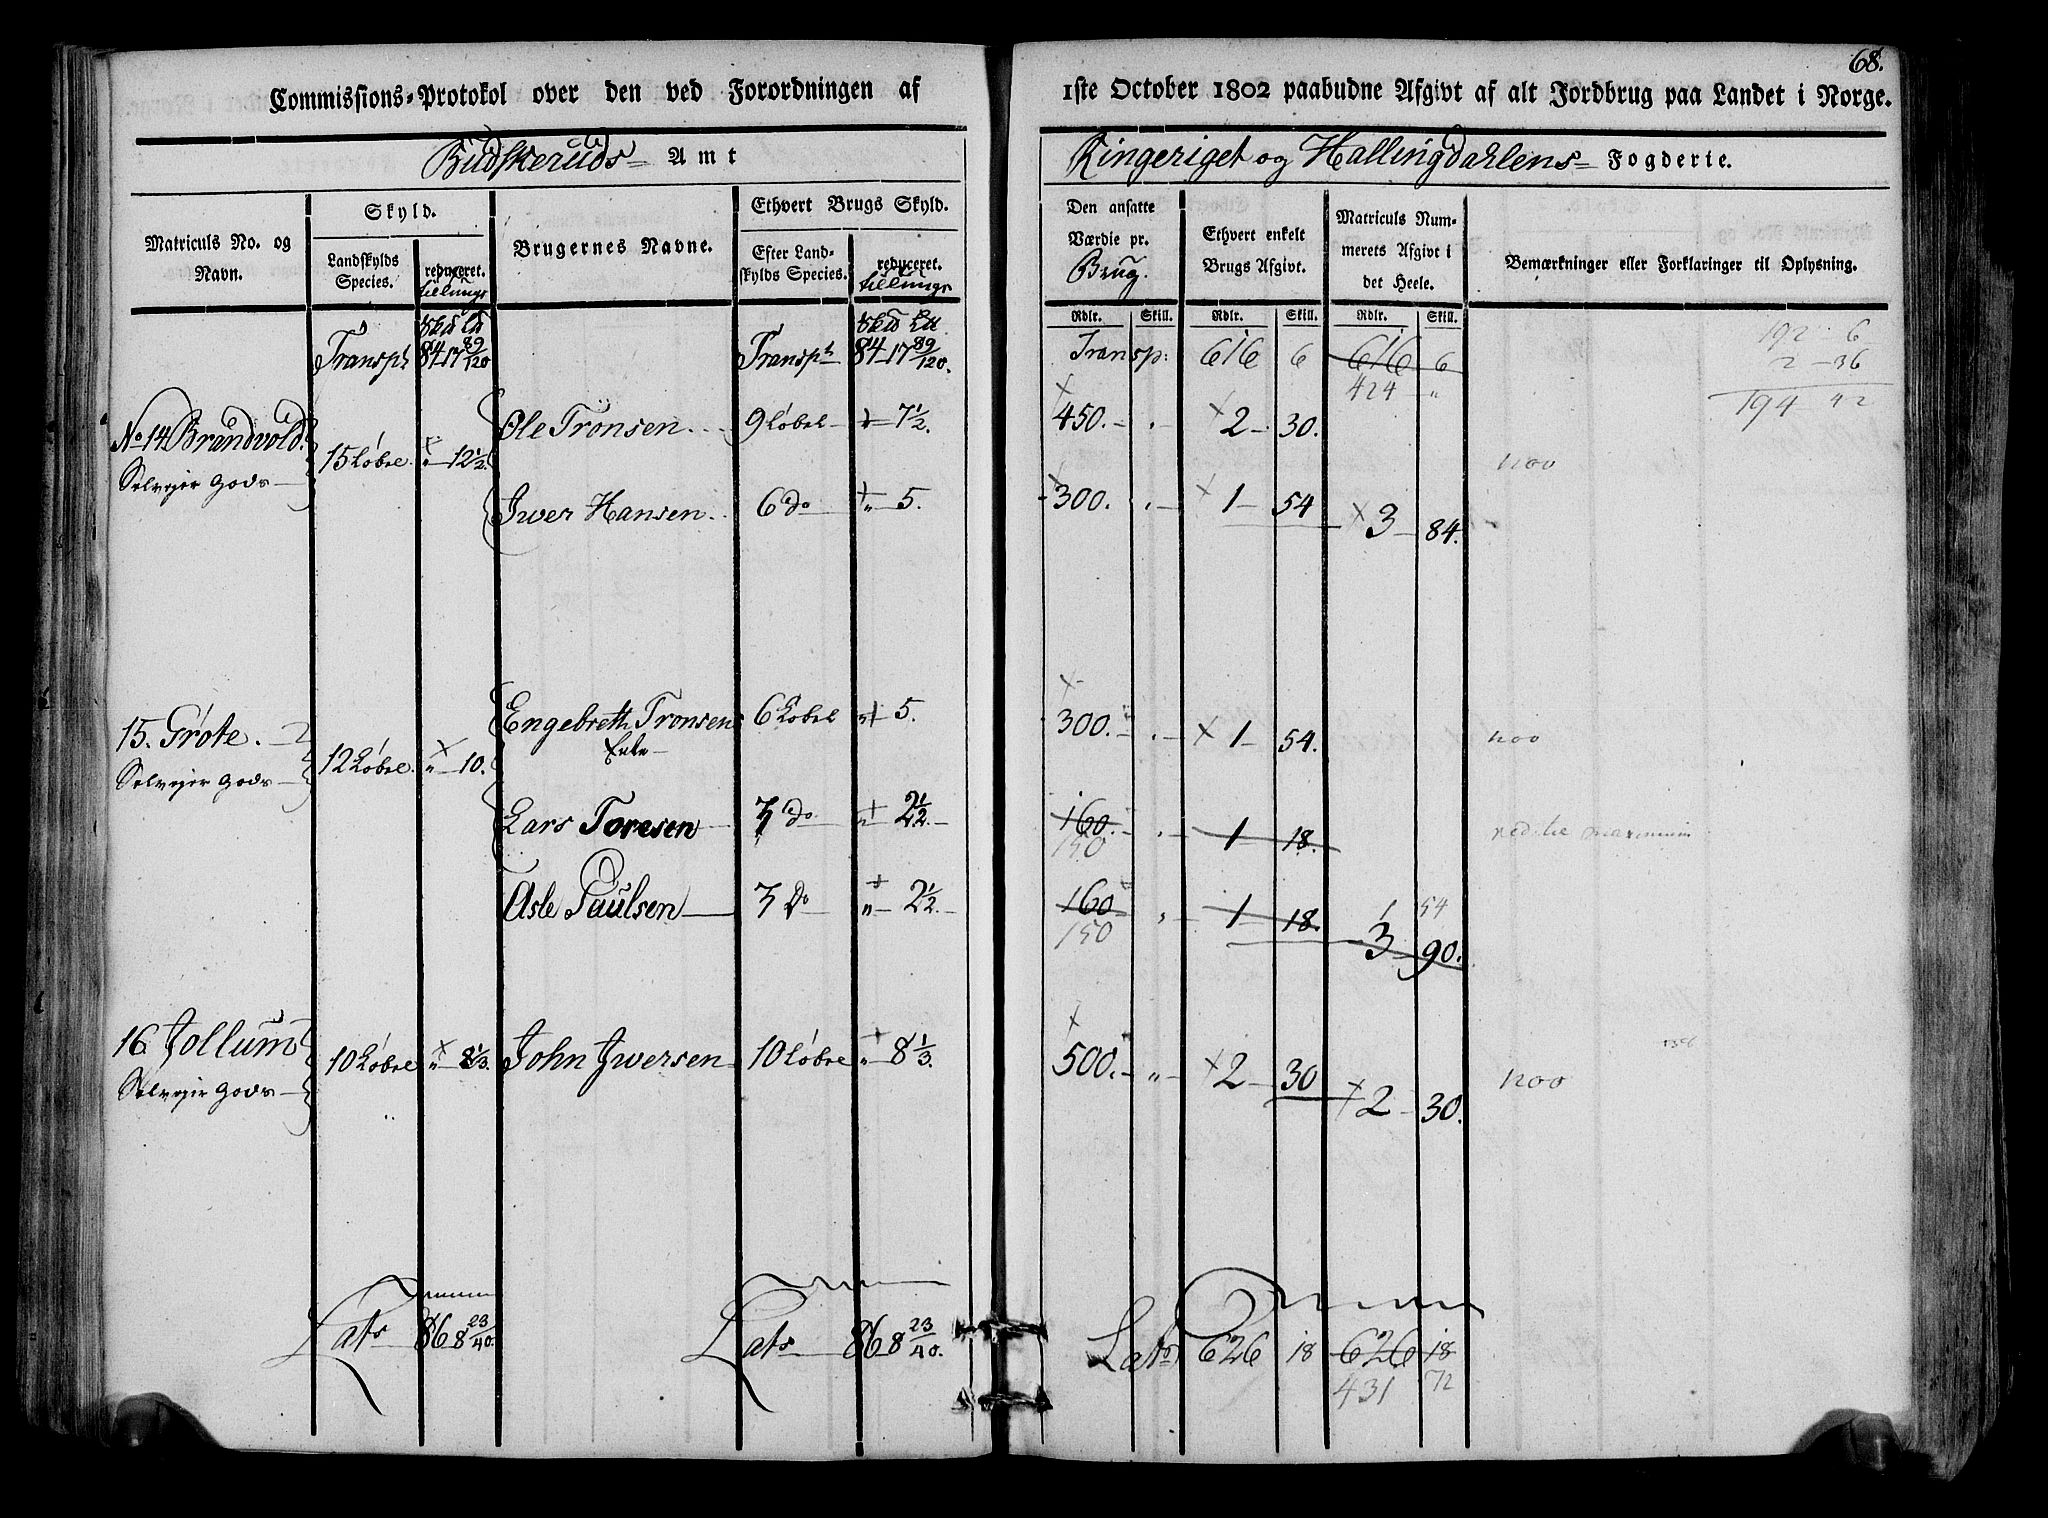 68.
Commissions-Protokol over den ved Forordningen af 1ste October 1802 paabudne Afgivt af alt Jordbrug paa Landet i Norge.
Budskeruds Amt Ringeriget og Hallingdahlens Fogderie.
Matriculs No. og Navn. Skyld. Brugernes Navne. Ethvert Brugs Skyld. Den ansatte Værdie pr. Brug. Ethvert enkelt Brugs Afgivt. Matriculs Nummerets Afgivt i det Heele. Bemærkninger eller Forklaringer til Oplysning.
Landskylds Species. reduceret. tillungs Efter Landskylds Species. reduceret. tillungs
Rdlr. Skill. Rdlr. Skill. Rdlr. Skill.
Skd Ld Skd Ld
Transpt 84 17 89/120 Transpt 84 17 89/120. Transp: 616 6 616 6
424 "
192 6
2 - 36
194 42
No 14 Brandvold. 15 Løbse. " 12 1/2. Ole Tronsen. 9 Løbse 7 1/2. 450. 2 30. noo
Selvejer Gods
Iwer Hansen. 6 do " 5. 300. 1 54 3 84.
15. Gróte. 12 Løbse. " 10. Engebreth Tronsens 6 Løbse " 5. 300. 1 54. noo
Selvejer Gods Enke
Lars Toresen 3 do " 2 1/2. 160. 1 18. red. til maximum
150
Asle Paulsen 3 Do " 2 1/2. 160 1 18. 1 54
150 3 90.
16 Jollum 10 Løbse " 8 1/3. John Iwersen 10 Løbse " 8 1/3. 500. " 2 30 2 30. noo
Selvejer Gods
Lats 86 8 23/40. Lats 86 8 23/40. Lats 626 18 626 18
431 72